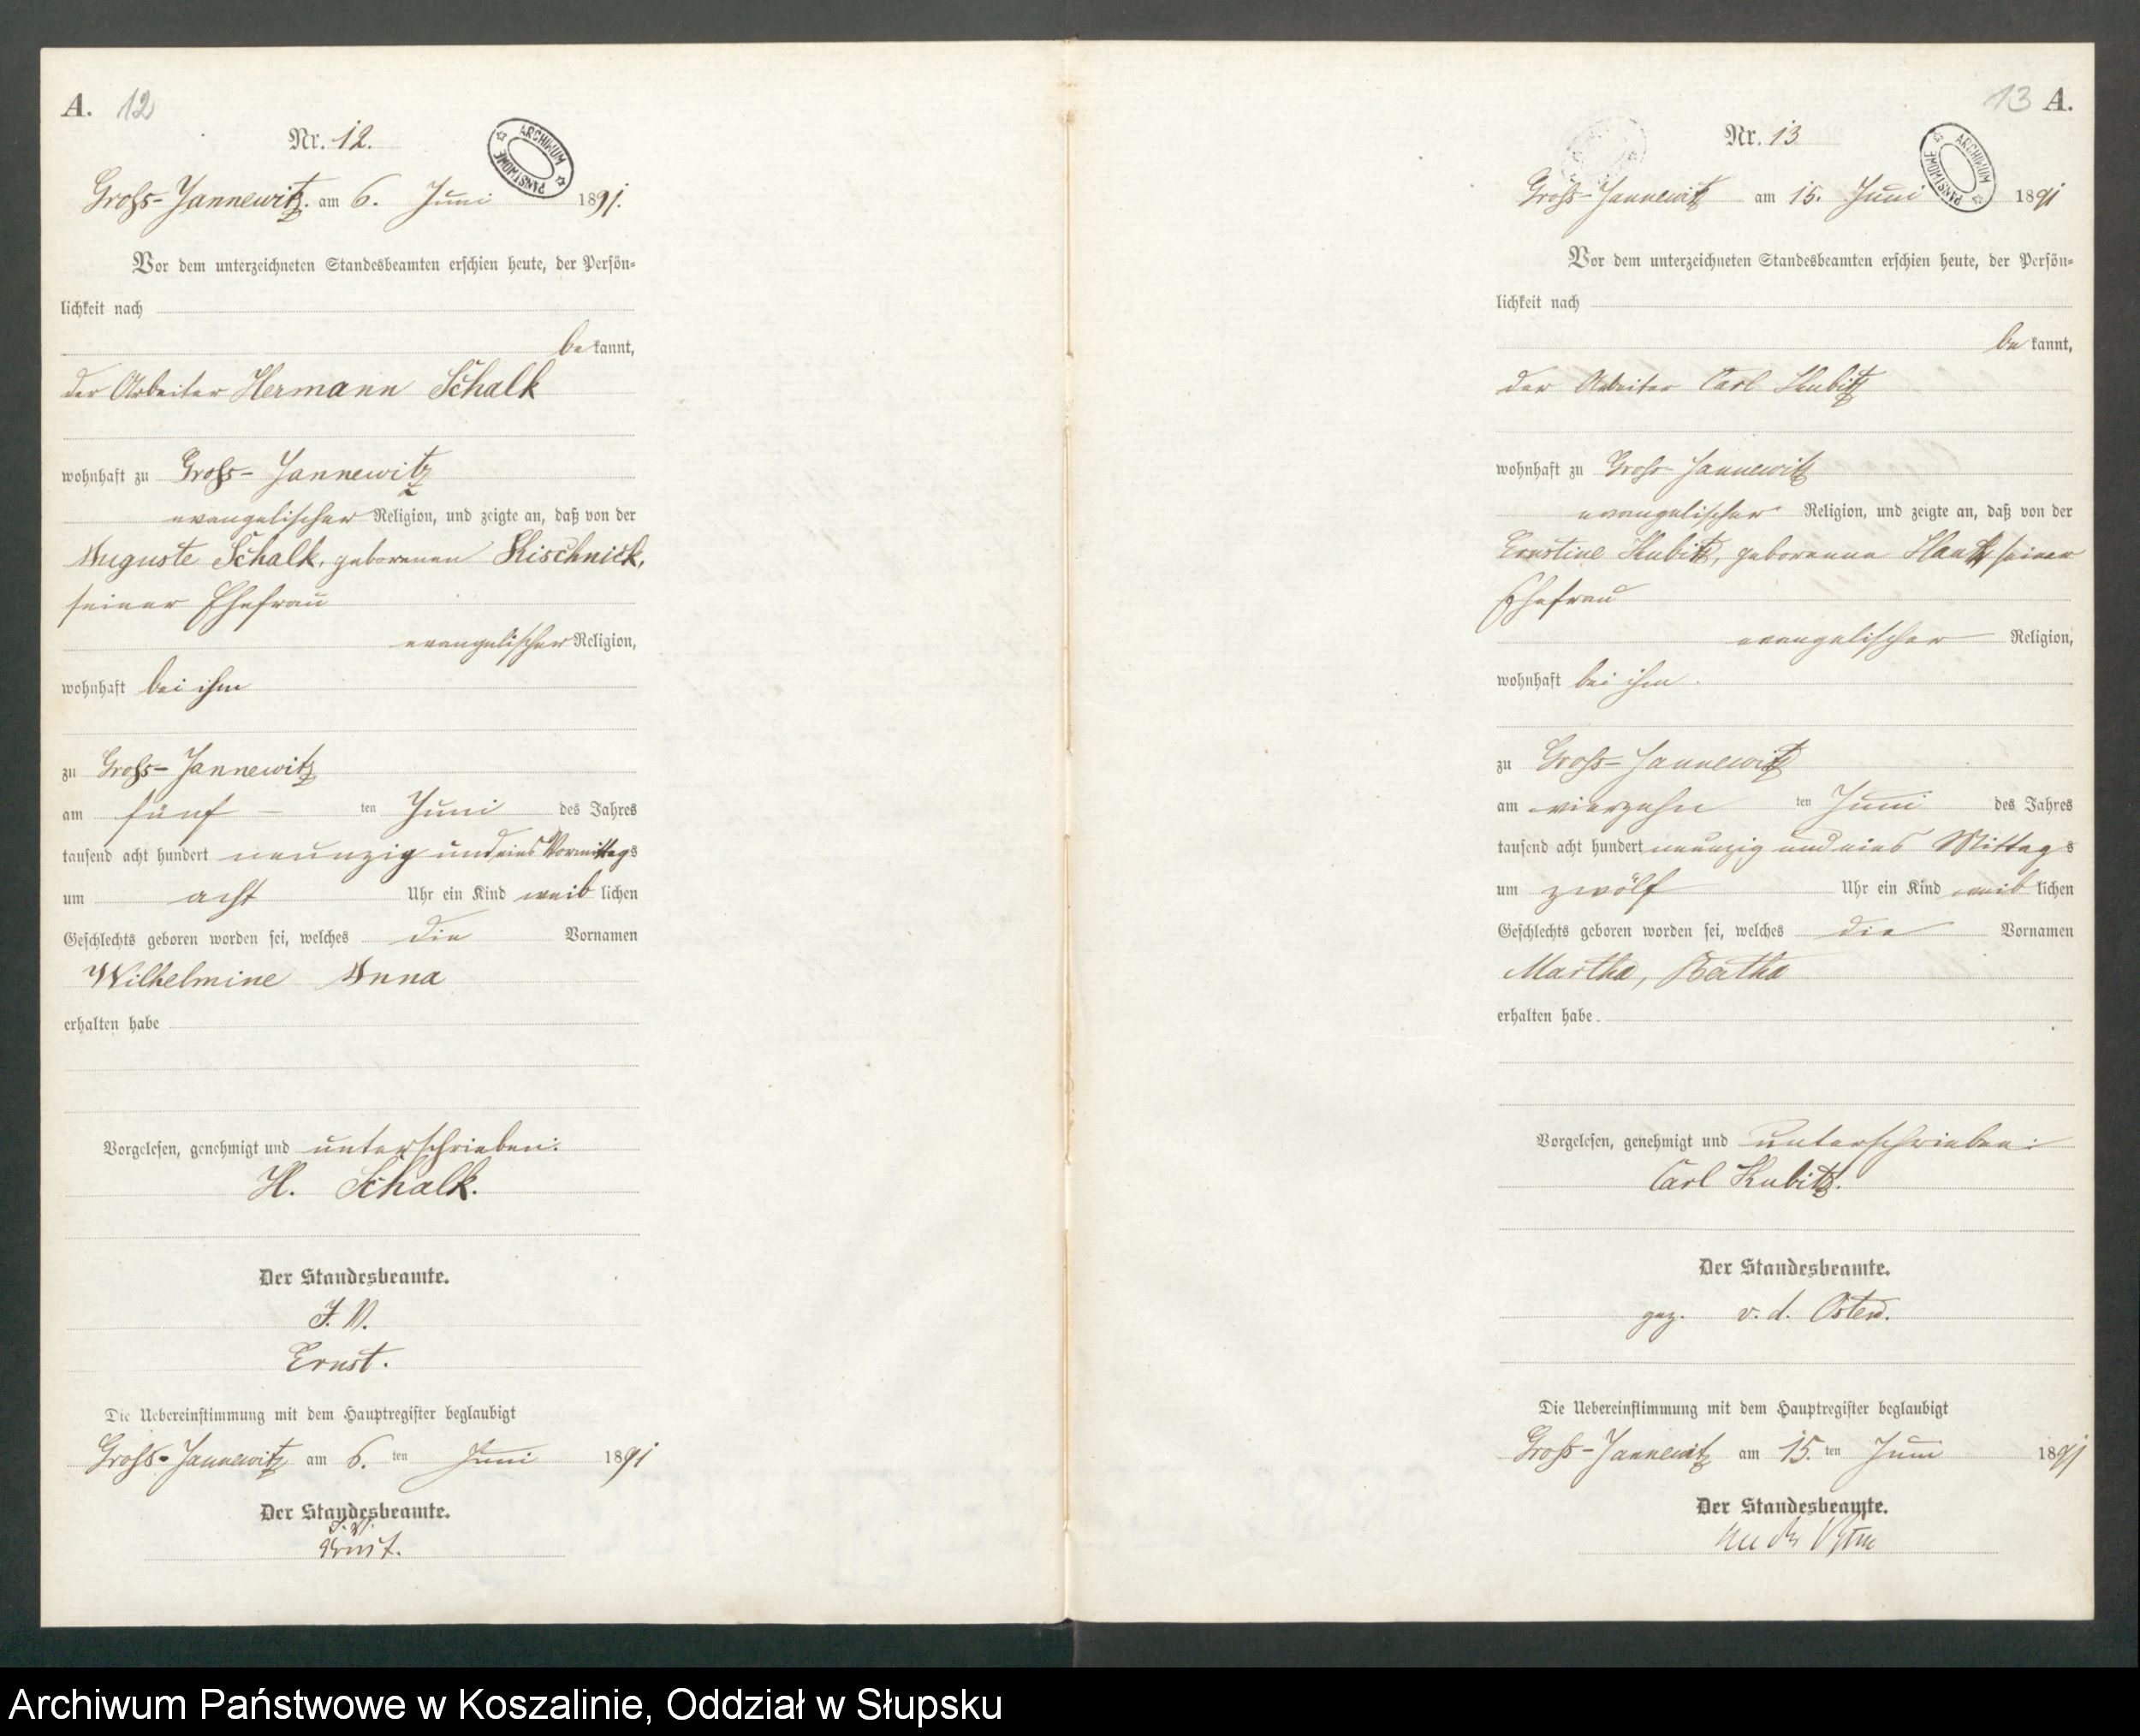 A. 12
Nr. 12.
ARCHIWUM PAŃSTWOWE
Groß-Jannewitz. am 6. Juni 1891.
Vor dem unterzeichneten Standesbeamten erschien heute, der Persön-
lichkeit nach
be kannt,
der Arbeiter Hermann Schalk
wohnhaft zu Groß-Jannewitz
evangelischer Religion, und zeigte an, daß von der
Auguste Schalk, geborenen Kischnick,
seiner Ehefrau
evangelischer Religion,
wohnhaft bei ihm
zu Groß-Jannewitz
am fünf ten Juni des Jahres
tausend acht hundert neunzig und eins Vormittags
um acht Uhr ein Kind weib lichen
Geschlechts geboren worden sei, welches die Vornamen
Wilhelmine Anna
erhalten habe
Vorgelesen, genehmigt und unterschrieben:
H. Schalk.
Der Standesbeamte.
J. V.
Ernst.
Die Uebereinstimmung mit dem Hauptregister beglaubigt
Groß-Jannewitz am 6. ten Juni 1891
Der Standesbeamte.
J. V.
Ernst.
13 A.
Nr. 13
ARCHIWUM PAŃSTWOWE
Groß-Jannewitz am 15. Juni 1891
Vor dem unterzeichneten Standesbeamten erschien heute, der Persön-
lichkeit nach
be kannt,
der Arbeiter Carl Kubitz
wohnhaft zu Groß-Jannewitz
evangelischer Religion, und zeigte an, daß von der
Ernestine Kubitz, geborenen seiner
Ehefrau
evangelischer Religion,
wohnhaft bei ihm.
zu Groß-Jannewitz
am vierzehn ten Juni des Jahres
tausend acht hundert neunzig und eins Mittag s
um zwölf Uhr ein Kind weib lichen
Geschlechts geboren worden sei, welches die Vornamen
Martha, Bertha
erhalten habe.
Vorgelesen, genehmigt und unterschrieben:
Carl Kubitz.
Der Standesbeamte.
gez. v. d. Osten.
Die Uebereinstimmung mit dem Hauptregister beglaubigt
Groß-Jannewitz am 15. ten Juni 1891
Der Standesbeamte.
von der Osten
Archiwum Państwowe w Koszalinie, Oddział w Słupsku